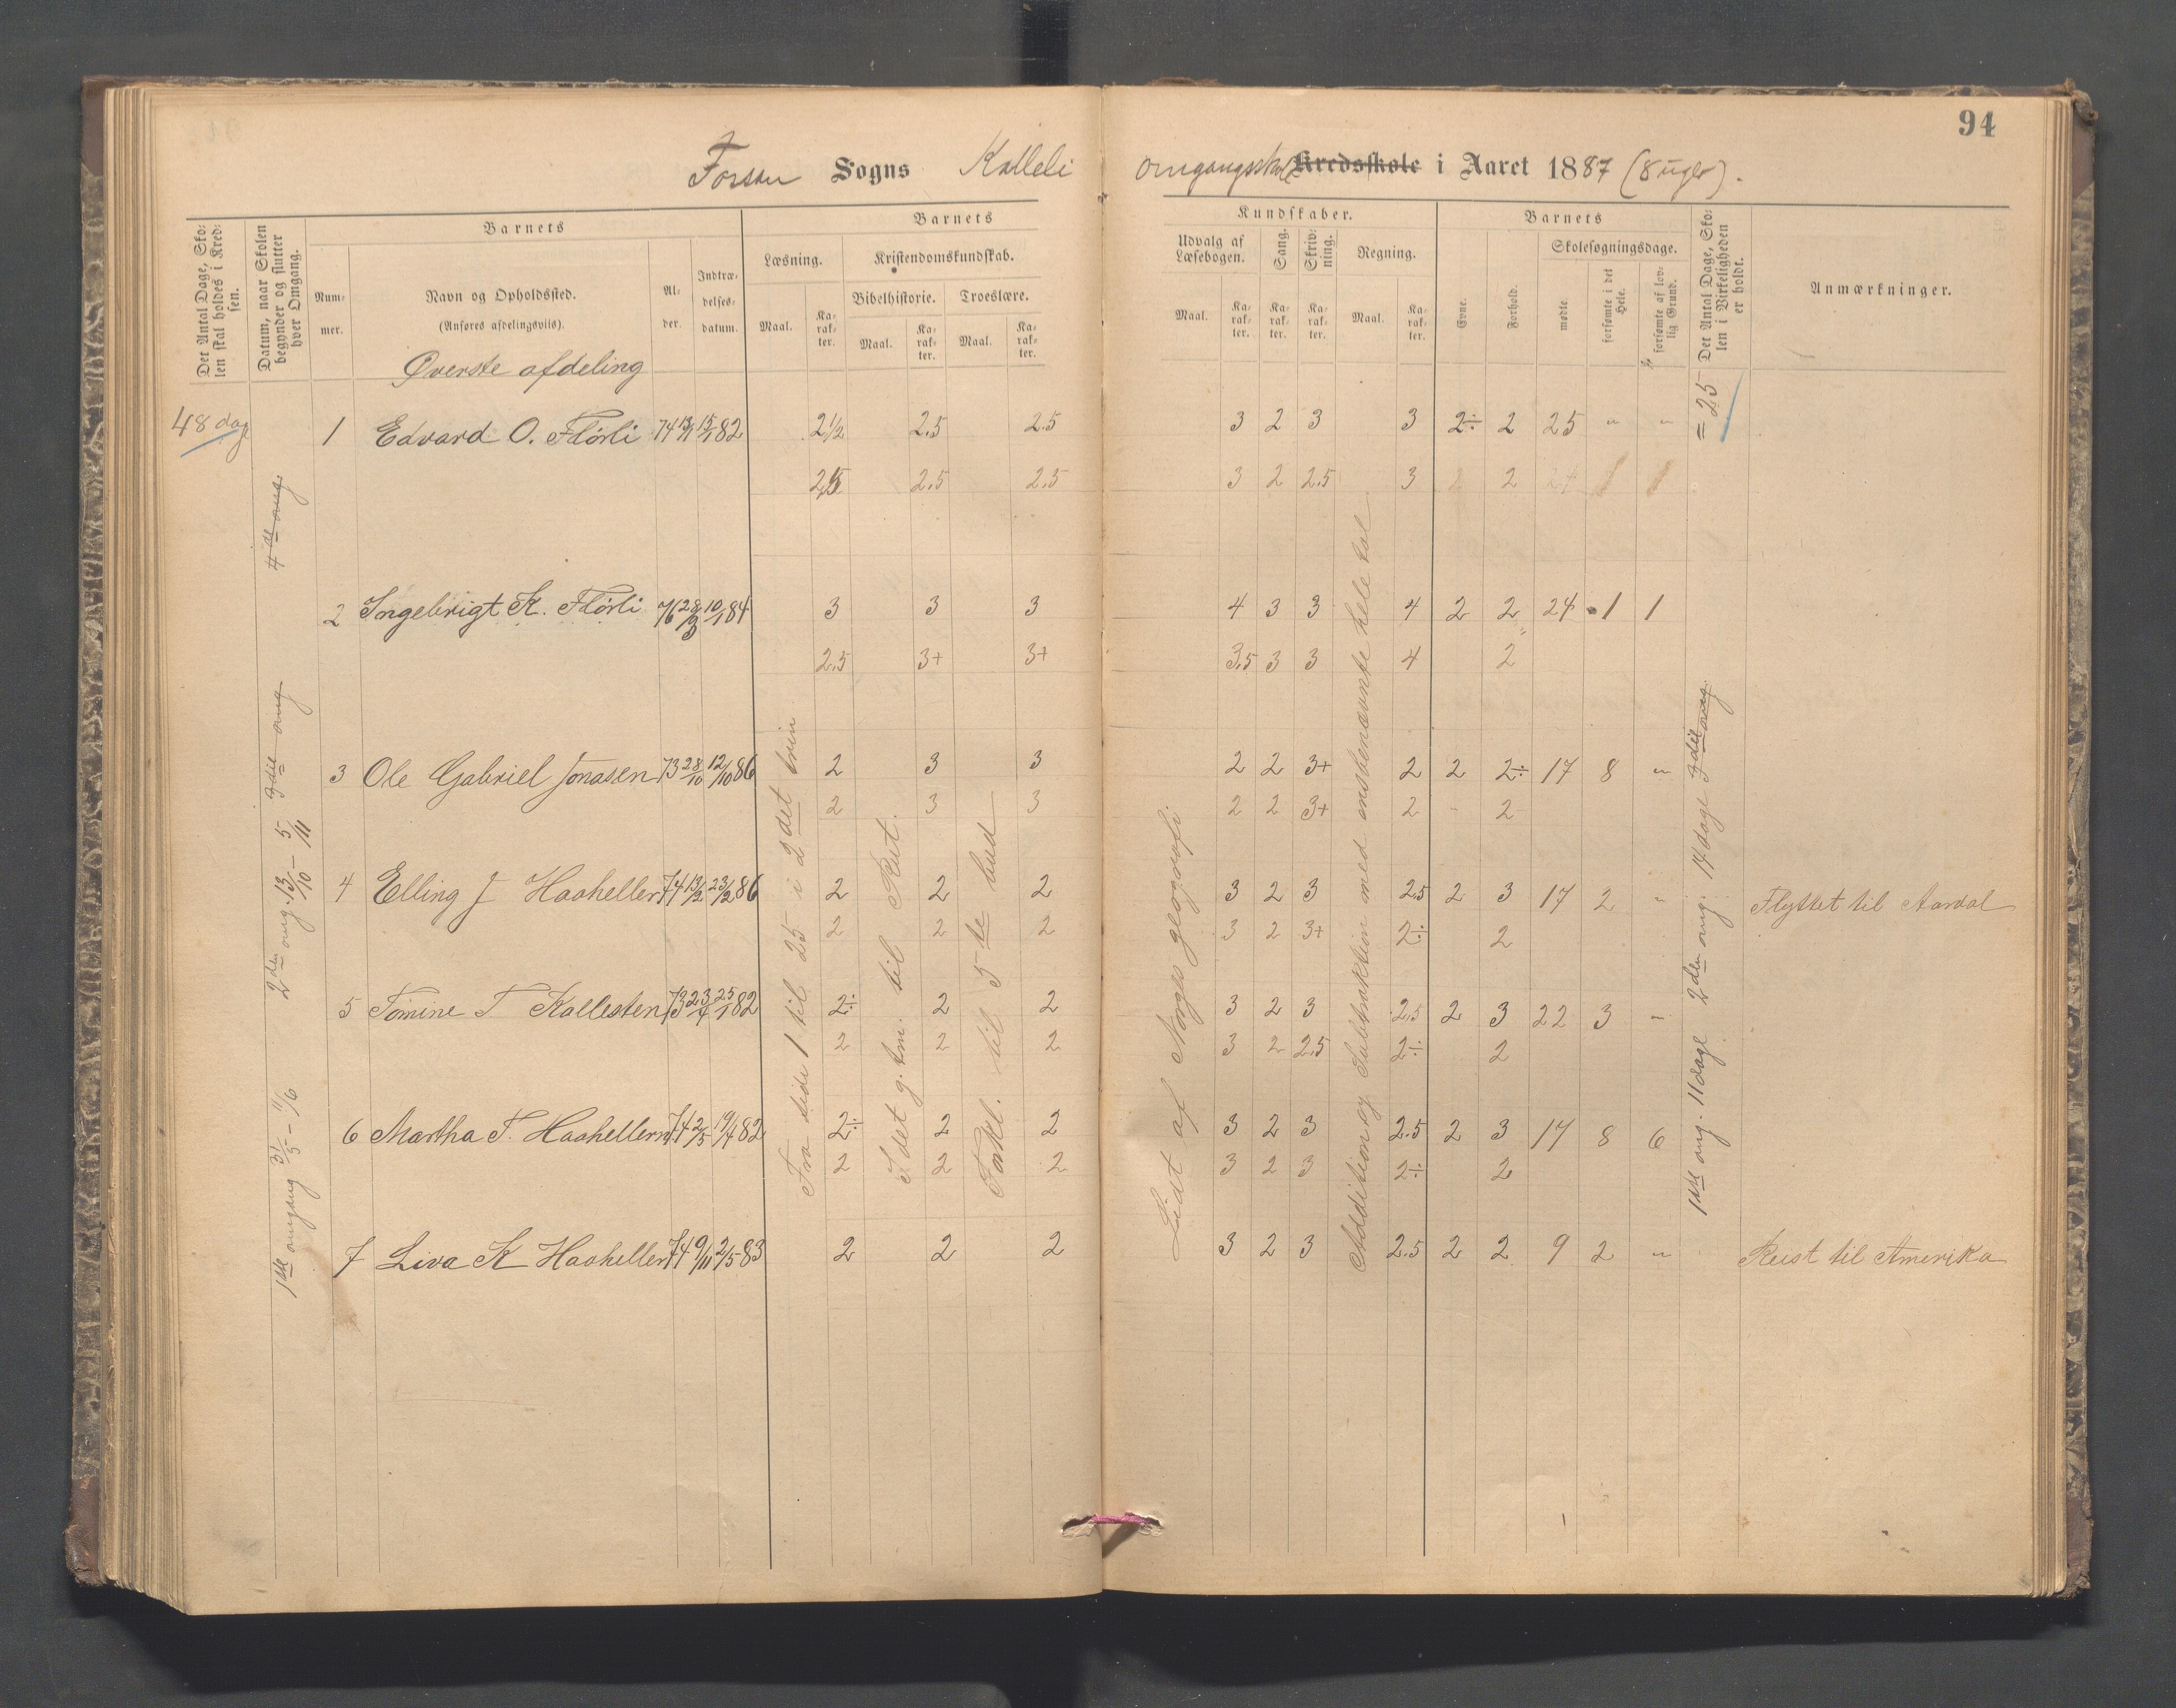 94
Forsan Sogns Kalleli omgangsskole Kredsskole i Aaret 1887 (8 uger).
Det Antal Dage, Skolen skal holdes i Kredsen.
Datum, naar Skolen begynder og slutter hver Omgang.
Barnets
Nummer.
Navn og Opholdssted.
(Anføres afdelingsviis).
Alder.
Indtrædelsesdatum.
Barnets Kundskaber.
Læsning.
Maal.
Karakter.
Kristendomskundskab.
Bibelhistorie.
Maal.
Karakter.
Troeslære.
Maal.
Karakter.
Udvalg af Læsebogen.
Maal.
Karakter.
Sang.
Karakter.
Skrivning.
Karakter.
Regning.
Maal.
Karakter.
Barnets
Evne.
Forhold.
Skolesøgningsdage.
mødte
forsømte i det Hele.
forsømte af lovlig Grund.
Det Antal Dage, Skolen i Virkeligheden er holdt.
Anmærkninger.
Øverste afdeling
48 dag
1 Edvard O. Flörli 74 13/11 15/1 82 2½ 2.5 2.5 3 2 3 3 2÷ 2 25 " " = 25
2.5 2.5 2.5 3 2 2.5 3 2 24 1 1
2 Ingebrigt K. Flörli 76 28/3 10/1 84 3 3 3 4 3 3 4 2 2 24 1 1
2.5 3+ 3+ 3.5 3 3 4 2
3 Ole Gabriel Jonasen 73 28/10 12/10 86 2 3 3 2 2 3+ 2 2 2÷ 17 8 "
2 3 3 2 2 3+ 2 - 2
4 Elling J Haahellern 74 13/2 23/2 86 2 2 2 3 2 3 2.5 2 3 17 2 " Flyttet til Aardal
2 2 2 3 2 3+ 2÷ 2
5 Tomine T Kallesten 73 23/4 25/1 82 2÷ 2 2 3 2 3 2.5 2 3 22 3 "
2 2 2 3 2 2.5 2÷ 2
6 Martha T. Haahellern 74 2/5 19/4 82 2÷ 2 2 3 2 3 2.5 2 3 17 8 6
2 2 2 3 2 3 2÷ 2
7 Liva K Haahellern 74 9/11 2/5 83 2 2 2 3 2 3 2.5 2 2 9 2 " Reist til Amerika
1ste omgang 31/5 - 11/6
2den omg. 13/10 - 5/11
3die omg
4de omg.
Fra side 1 til 25 i 2det trin
I det g. tm. til Rut.
Forkl. til 5te bud
Lidt af Norges geografi
Addition og Subtraktion med ensbenævnte hele tal
1ste omg. 11 dage
2den omg. 14 dage
3die omg.